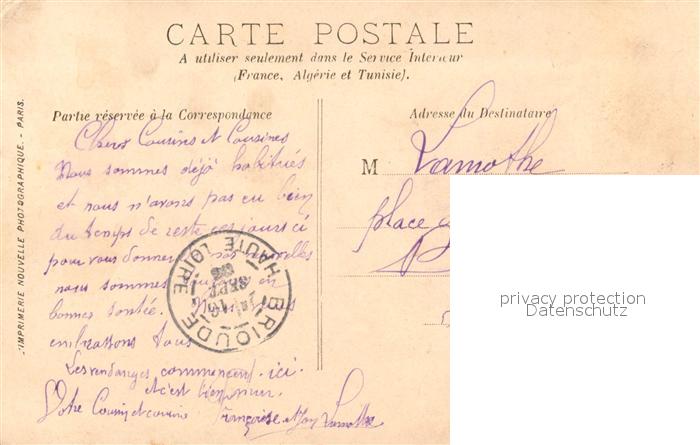 CARTE POSTALE
A utiliser seulement dans le Service Interieur
(France, Algérie et Tunisie).
Partie réservée à la Correspondance
Chers Cousins et Cousines
Nous sommes déjà habitués
et nous n'avons pas eu bien
du temps de reste ces jours ci
pour vous donner nos nouvelles
nous sommes en
bonne santé. Nous vous
embrassons tous
Les vendanges commencent ici.
et c'est bien mur.
Votre Cousin et cousine Françoise et Lamothe
Adresse du Destinataire
M Lamothe
place
BRIOUDE
HAUTE LOIRE
SEPT.
IMPRIMERIE NOUVELLE PHOTOGRAPHIQUE. - PARIS.
privacy protection
Datenschutz